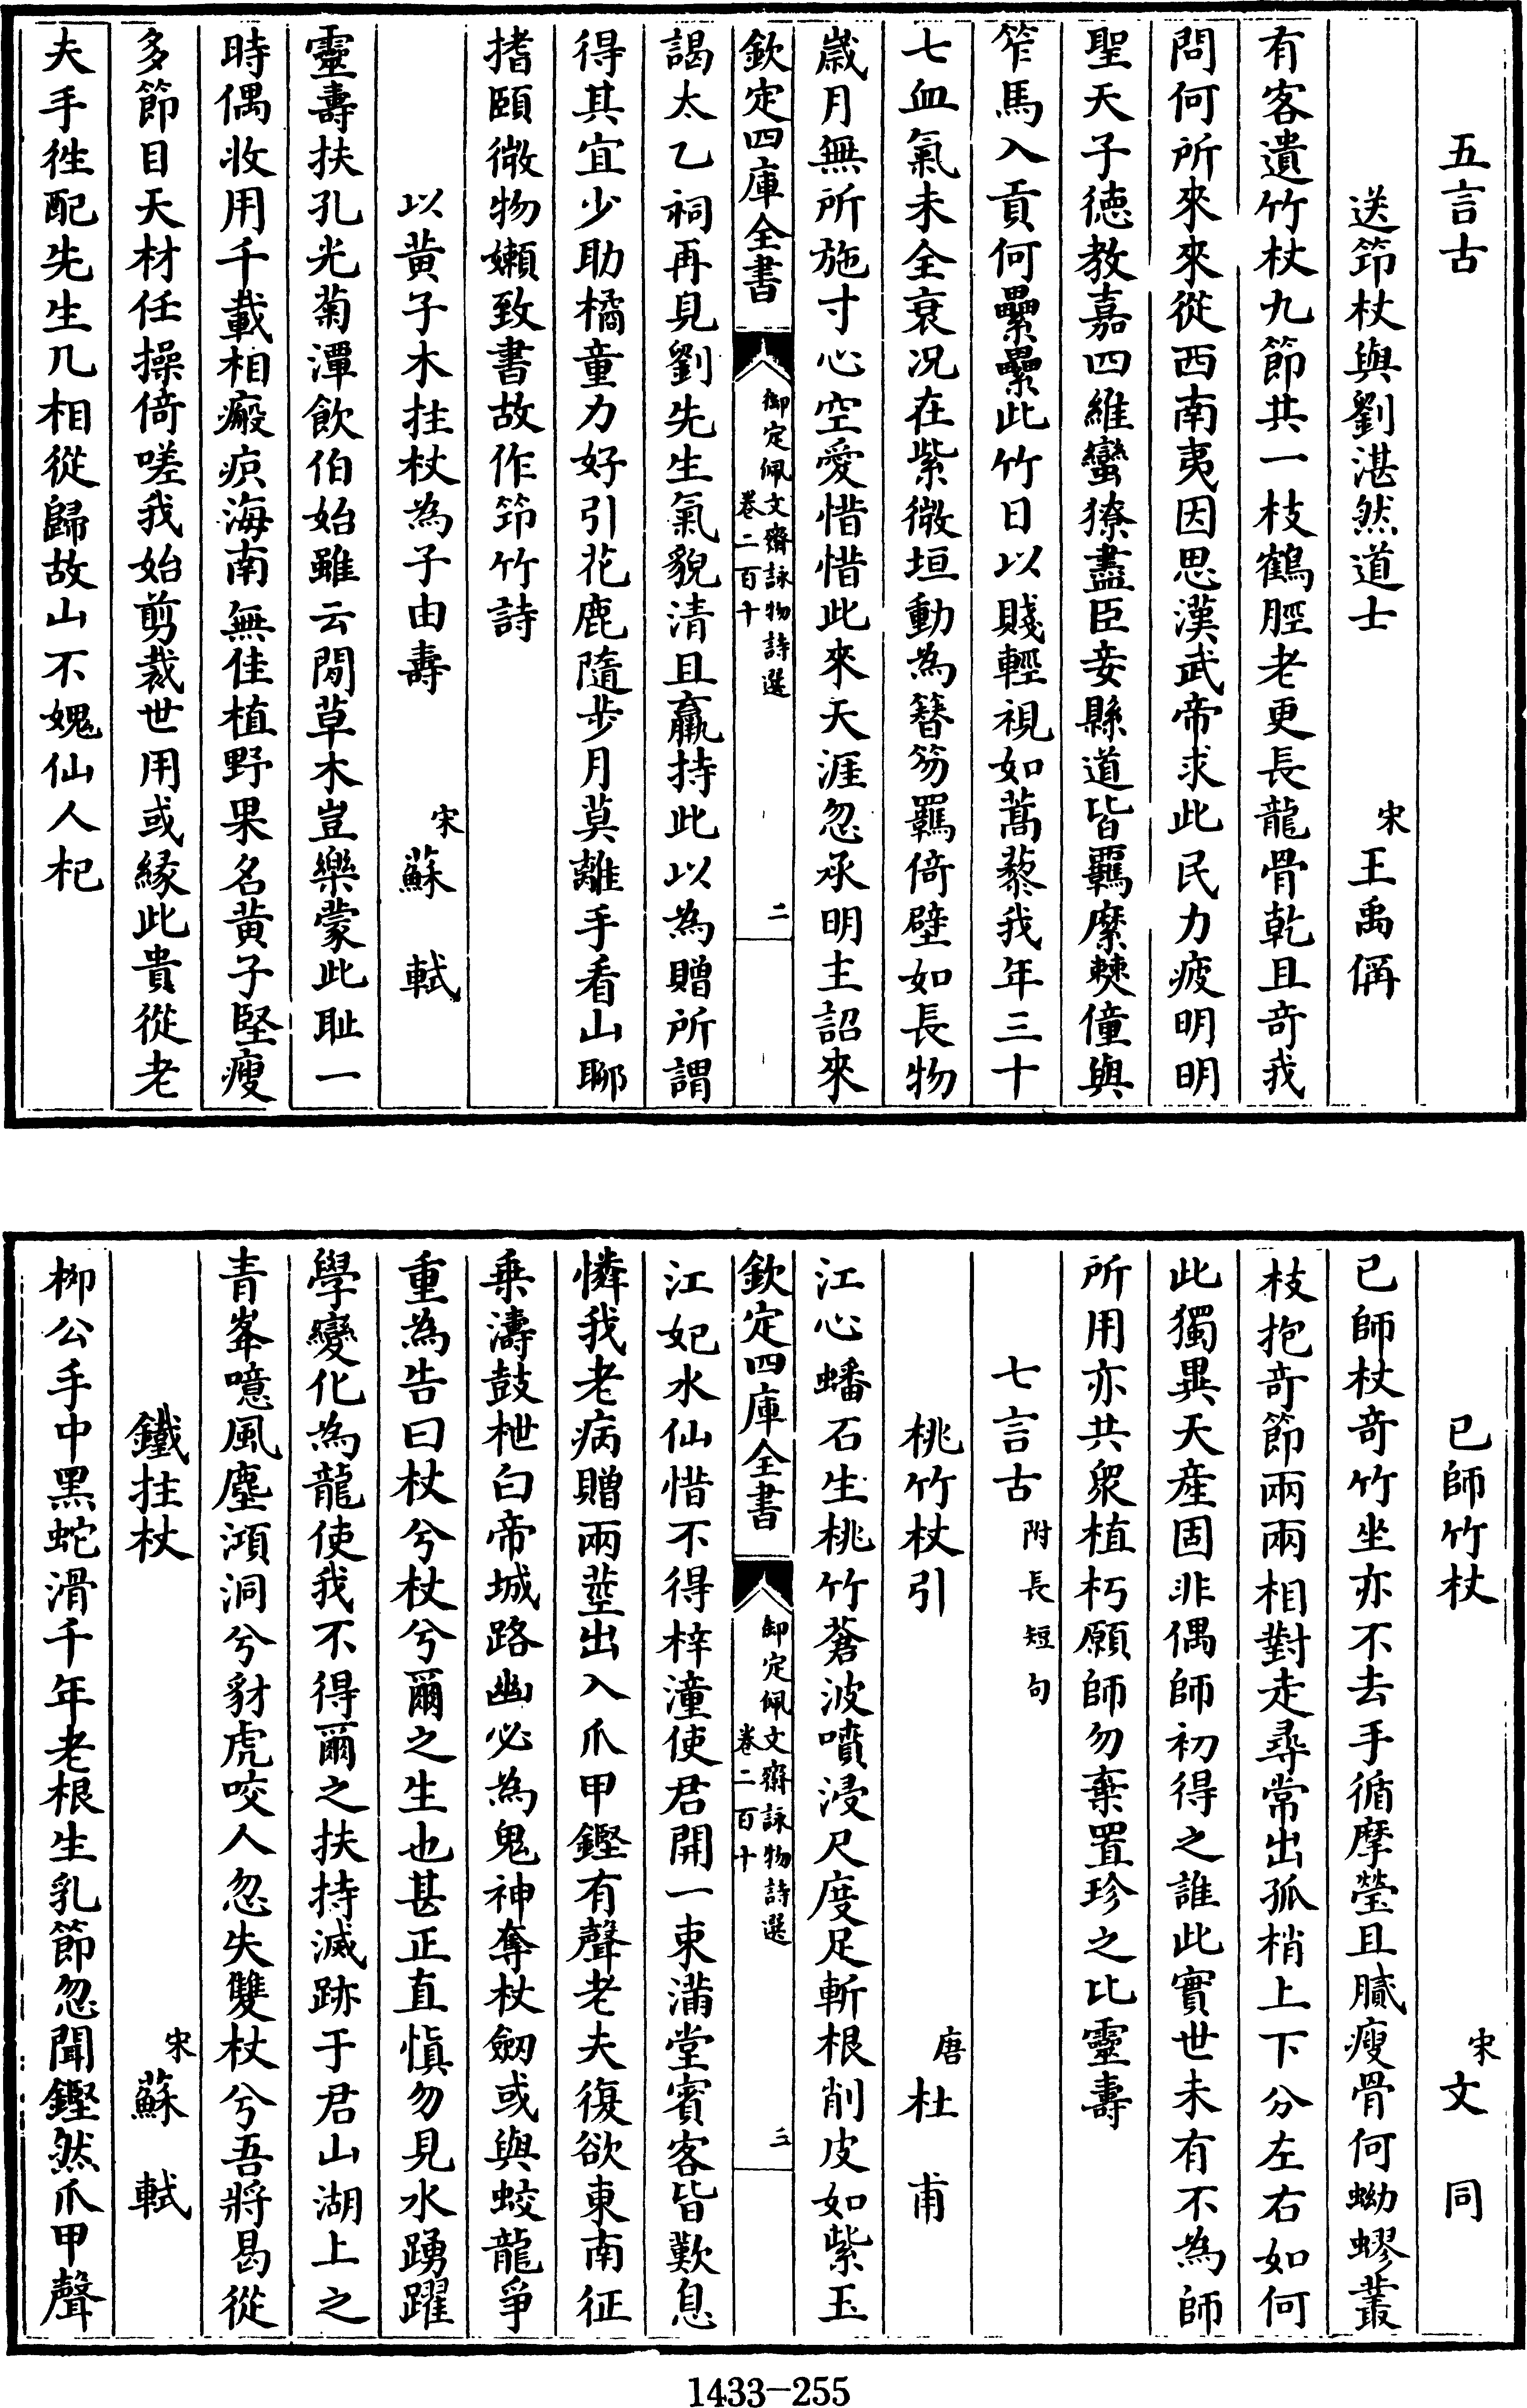 五言古
送笻杖與劉湛然道士　宋王禹偁
有客遺竹杖九節共一枝鶴脛老更長龍骨乾且奇我
問何所來來從西南夷因思漢武帝求此民力疲明明
聖天子德教嘉四維蠻獠盡臣妾縣道皆羈縻僰僮與
笮馬入貢何纍纍此竹日以賤輕視如蒿藜我年三十
七血氣未全衰况在紫微垣動為簪笏羈倚壁如長物
歲月無所施寸心空愛惜惜此來天涯忽承明主詔來
欽定四庫全書　御定佩文齋詠物詩選　卷二百十　二
謁太乙祠再見劉先生氣貌清且羸持此以為贈所謂
得其宜少助橘童力好引花鹿隨步月莫離手看山聊
搘頤微物嬾致書故作笻竹詩
以黃子木拄杖為子由壽　宋蘇軾
靈壽扶孔光菊潭飲伯始雖云閒草木豈樂蒙此恥一
時偶收用千載相瘢疻海南無佳植野果名黃子堅瘦
多節目天材任操倚嗟我始剪裁世用或緣此貴從老
夫手徃配先生几相從歸故山不媿仙人杞
已師竹杖　宋文同
已師杖奇竹坐亦不去手循摩瑩且膩瘦骨何蚴蟉叢
枝抱奇節兩兩相對走尋常出孤梢上下分左右如何
此獨異天產固非偶師初得之誰此實世未有不為師
所用亦共衆植朽願師勿棄置珍之比靈壽
七言古　附長短句
桃竹杖引　唐杜甫
江心蟠石生桃竹蒼波噴浸尺度足斬根削皮如紫玉
欽定四庫全書　御定佩文齋詠物詩選　卷二百十　三
江妃水仙惜不得梓潼使君開一束滿堂賓客皆歎息
憐我老病贈兩莖出入爪甲鏗有聲老夫復欲東南征
乘濤鼓枻白帝城路幽必為鬼神奪杖劒或與蛟龍爭
重為告曰杖兮杖兮爾之生也甚正直慎勿見水踴躍
學變化為龍使我不得爾之扶持滅跡于君山湖上之
青峯噫風塵澒洞兮豺虎咬人忽失雙杖兮吾將曷從
鐵拄杖　宋蘇軾
柳公手中黑蛇滑千年老根生乳節忽聞鏗然爪甲聲
1433-255